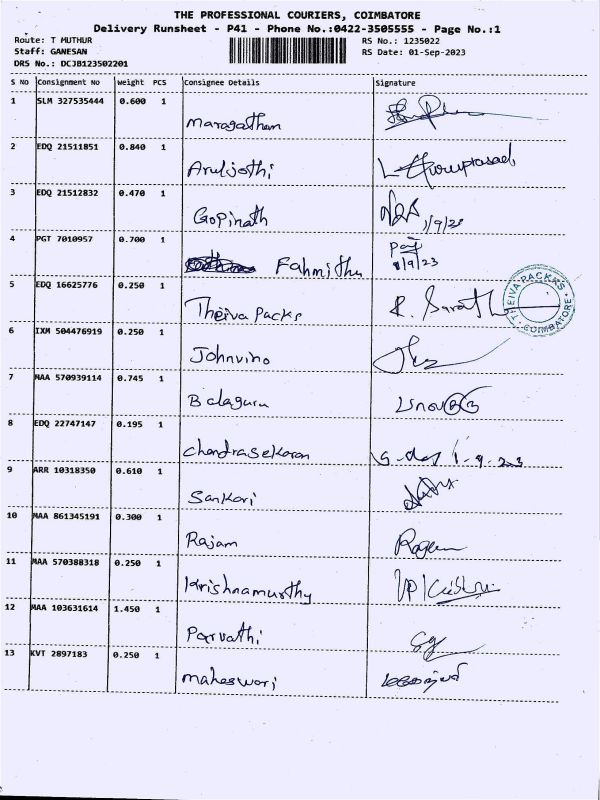 THE PROFESSIONAL COURIERS, COIMBATORE
Delivery Runsheet - P41 - Phone No.:0422-3505555 - Page No.:1
Route: T MUTHUR
RS No.: 1235022
Staff: GANESAN
RS Date: 01-Sep-2023
DRS No.: DCJB123502201
S No Consignment No Weight PCS Consignee Details Signature
1 SLM 327535444 0.600 1
Maragatham
2 EDQ 21511851 0.840 1
Aruljothi
L Guruprasad
3 EDQ 21512832 0.470 1
Gopinath
1/9/23
4 PGT 7010957 0.700 1
Fahmitha
1/9/23
5 EDQ 16625776 0.250 1
Theiva Packs R. Sarath
THEIVA PACKS COIMBATORE
6 IXM 504476919 0.250 1
Johnvino
7 MAA 570939114 0.745 1
Balaguru
8 EDQ 22747147 0.195 1
Chandrasekaran
1-9-23
9 ARR 10318350 0.610 1
Sankari
10 MAA 861345191 0.300 1
Rajam
11 MAA 570388318 0.250 1
Krishnamurthy
12 MAA 103631614 1.450 1
Parvathi
13 KVT 2897183 0.250 1
Maheswari